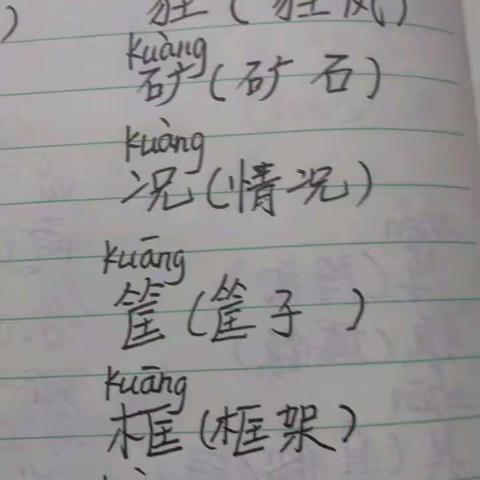 狂(狂风)
kuàng
矿(矿石)
kuàng
况(情况)
kuāng
筐(筐子)
kuāng
框(框架)